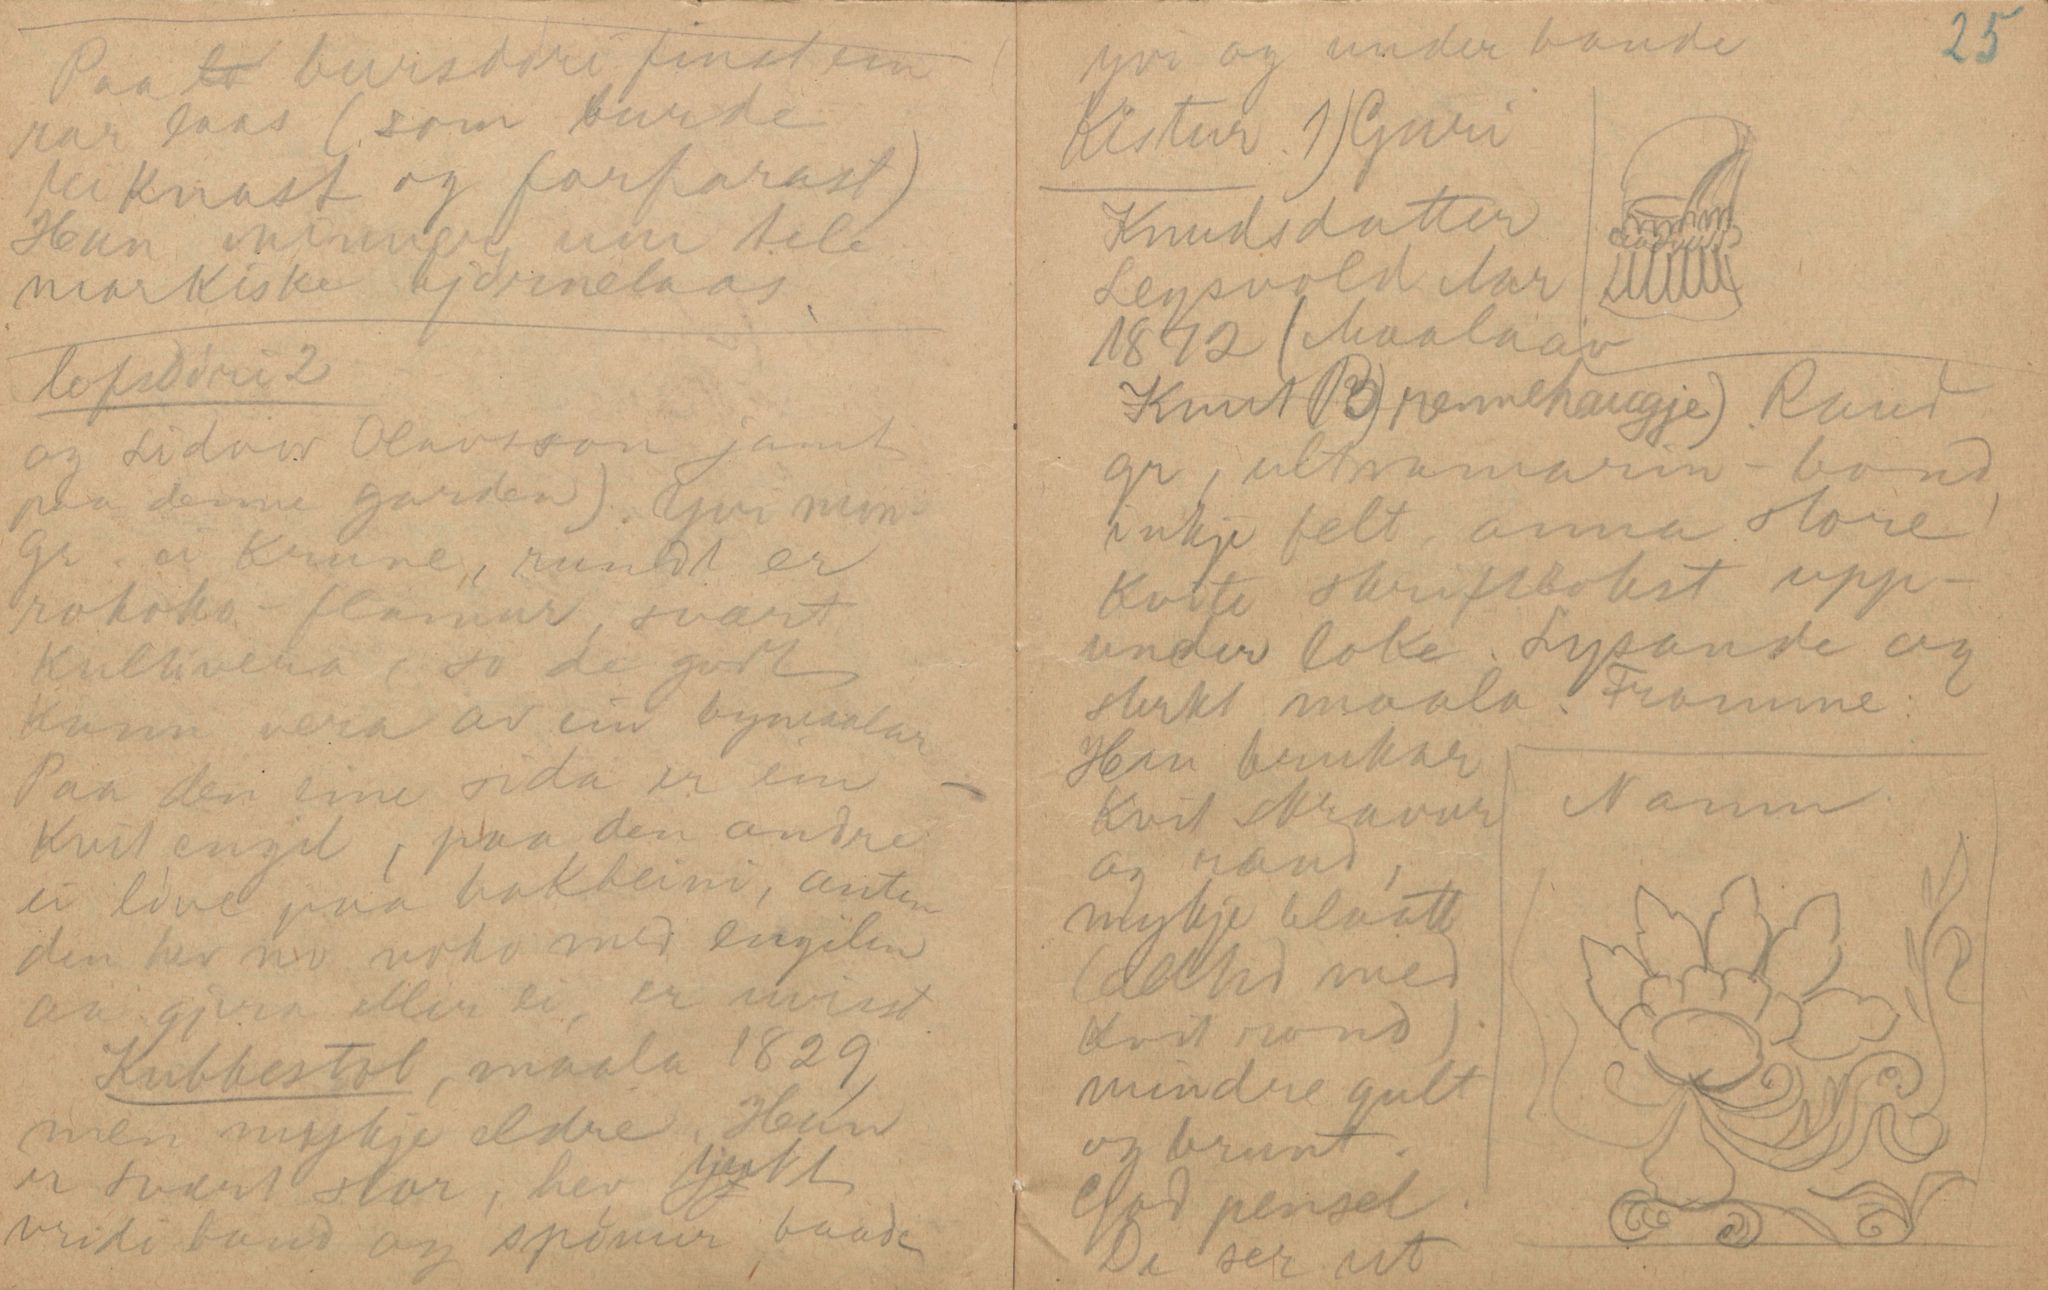 Paa to bursdøri finst ein
rar laas (som burde
teiknast og forfarast)
Han minner um tele
markiske bjørnelaas.
lofsdøri 2
og Sidvor Olavsson jamt
paa denne garden). Yvi mon-
gr. ei Krune, rundt er
rokoko-flamur, svært
Kultivera, so de godt
Kunn vera av ein bymaalar
Paa den eine sida er ein
Kvit engil, paa den andre
ei løve paa bakbeini, anten
den hev no noko med engilen
aa gjera eller ei, er uvisst.
Kubbestol, maala 1829,
men mykje eldre. Han
er svært stor, hev
vridi band og spønur baade
25
yvi og under bande
Kistur. 1) Guri
Knudsdatter
Leysvold Aar
1842 (Maala av
Knut Brennehaugje). Raud
gr, ultramarin-bond,
inkje felt, anna store
Kvite skriftbokst upp-
under loke. Lysande og
sterkt maala. Framme:
Han brukar
Kvit skravur
og rand,
mykje blaatt
(alltid med
Kvit rond).
mindre gult
og brunt.
God pensel.
De ser ut
Namn